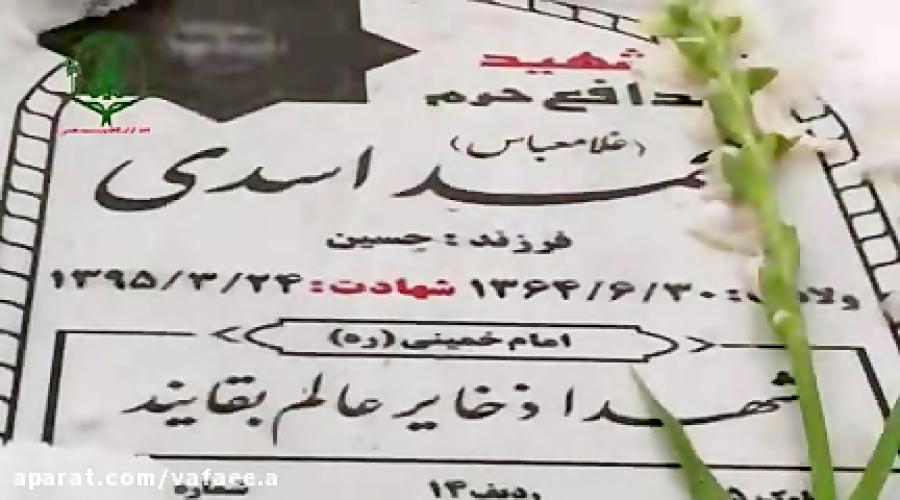 شهید
مدافع حرم
(غلامعباس)
محمد اسدی
فرزند : حسین
ولادت : ۱۳۶۴/۶/۳۰ شهادت : ۱۳۹۵/۳/۲۴
امام خمینی (ره)
شهدا ذخایر عالم بقایند
ردیف ۱۴ شماره
aparat.com/vafaee.a